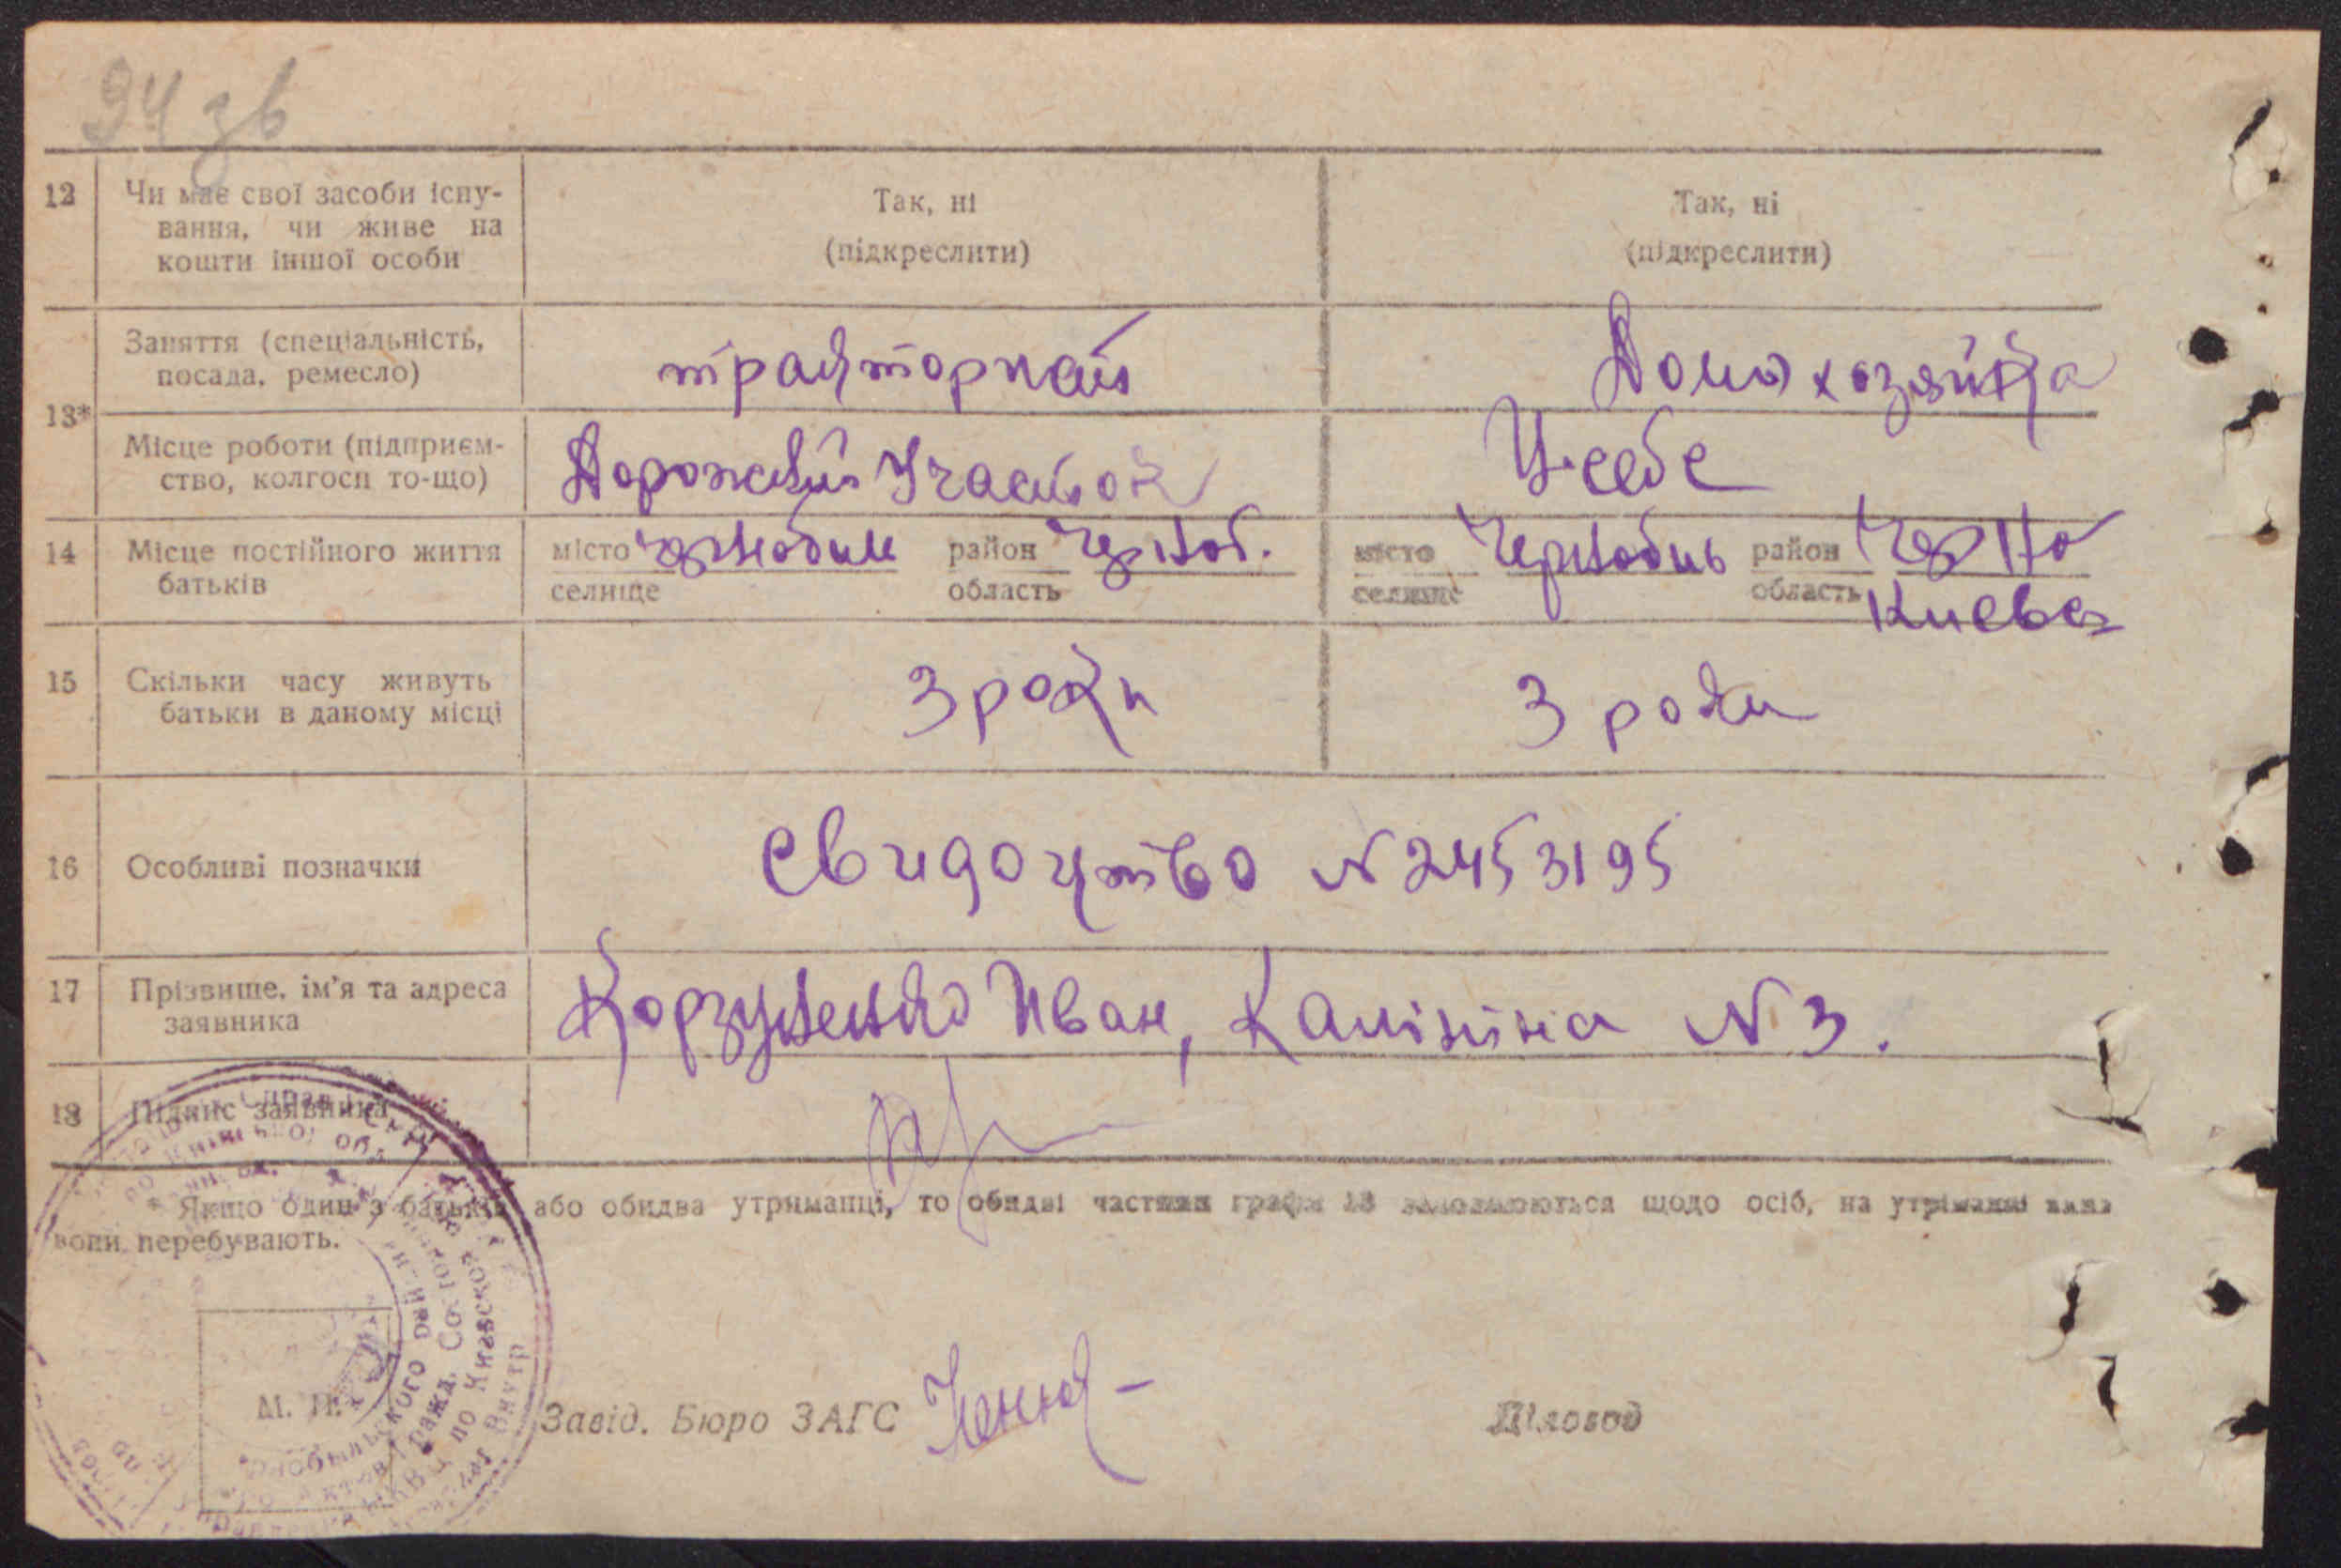 94 зв
12 Чи має свої засоби існу-
вання, чи живе на
кошти іншої особи
Так, ні
(підкреслити)
Так, ні
(підкреслити)
13*
Заняття (спеціальність,
посада, ремесло)
Домохозяйка
Місце роботи (підприєм-
ство, колгосп то-що)
Дорожный Участок
У себе
14 Місце постійного життя
батьків
місто Чернобиль район Черноб.
селище область
місто Чернобиль район Черно
селище область Киевс
15 Скільки часу живуть
батьки в даному місці
3 роки
3 роки
16 Особливі позначки
Свидоцтво N 2453195
17 Прізвище, ім'я та адреса
заявника
Иван, Калініна N 3.
18 Підпис заявника
Якщо один з батьків або обидва утриманці, то обидві частини графи 13 заповнюються щодо осіб, на утриманні яких
вони перебувають.
М. П.
Завід. Бюро ЗАГС
Діловод